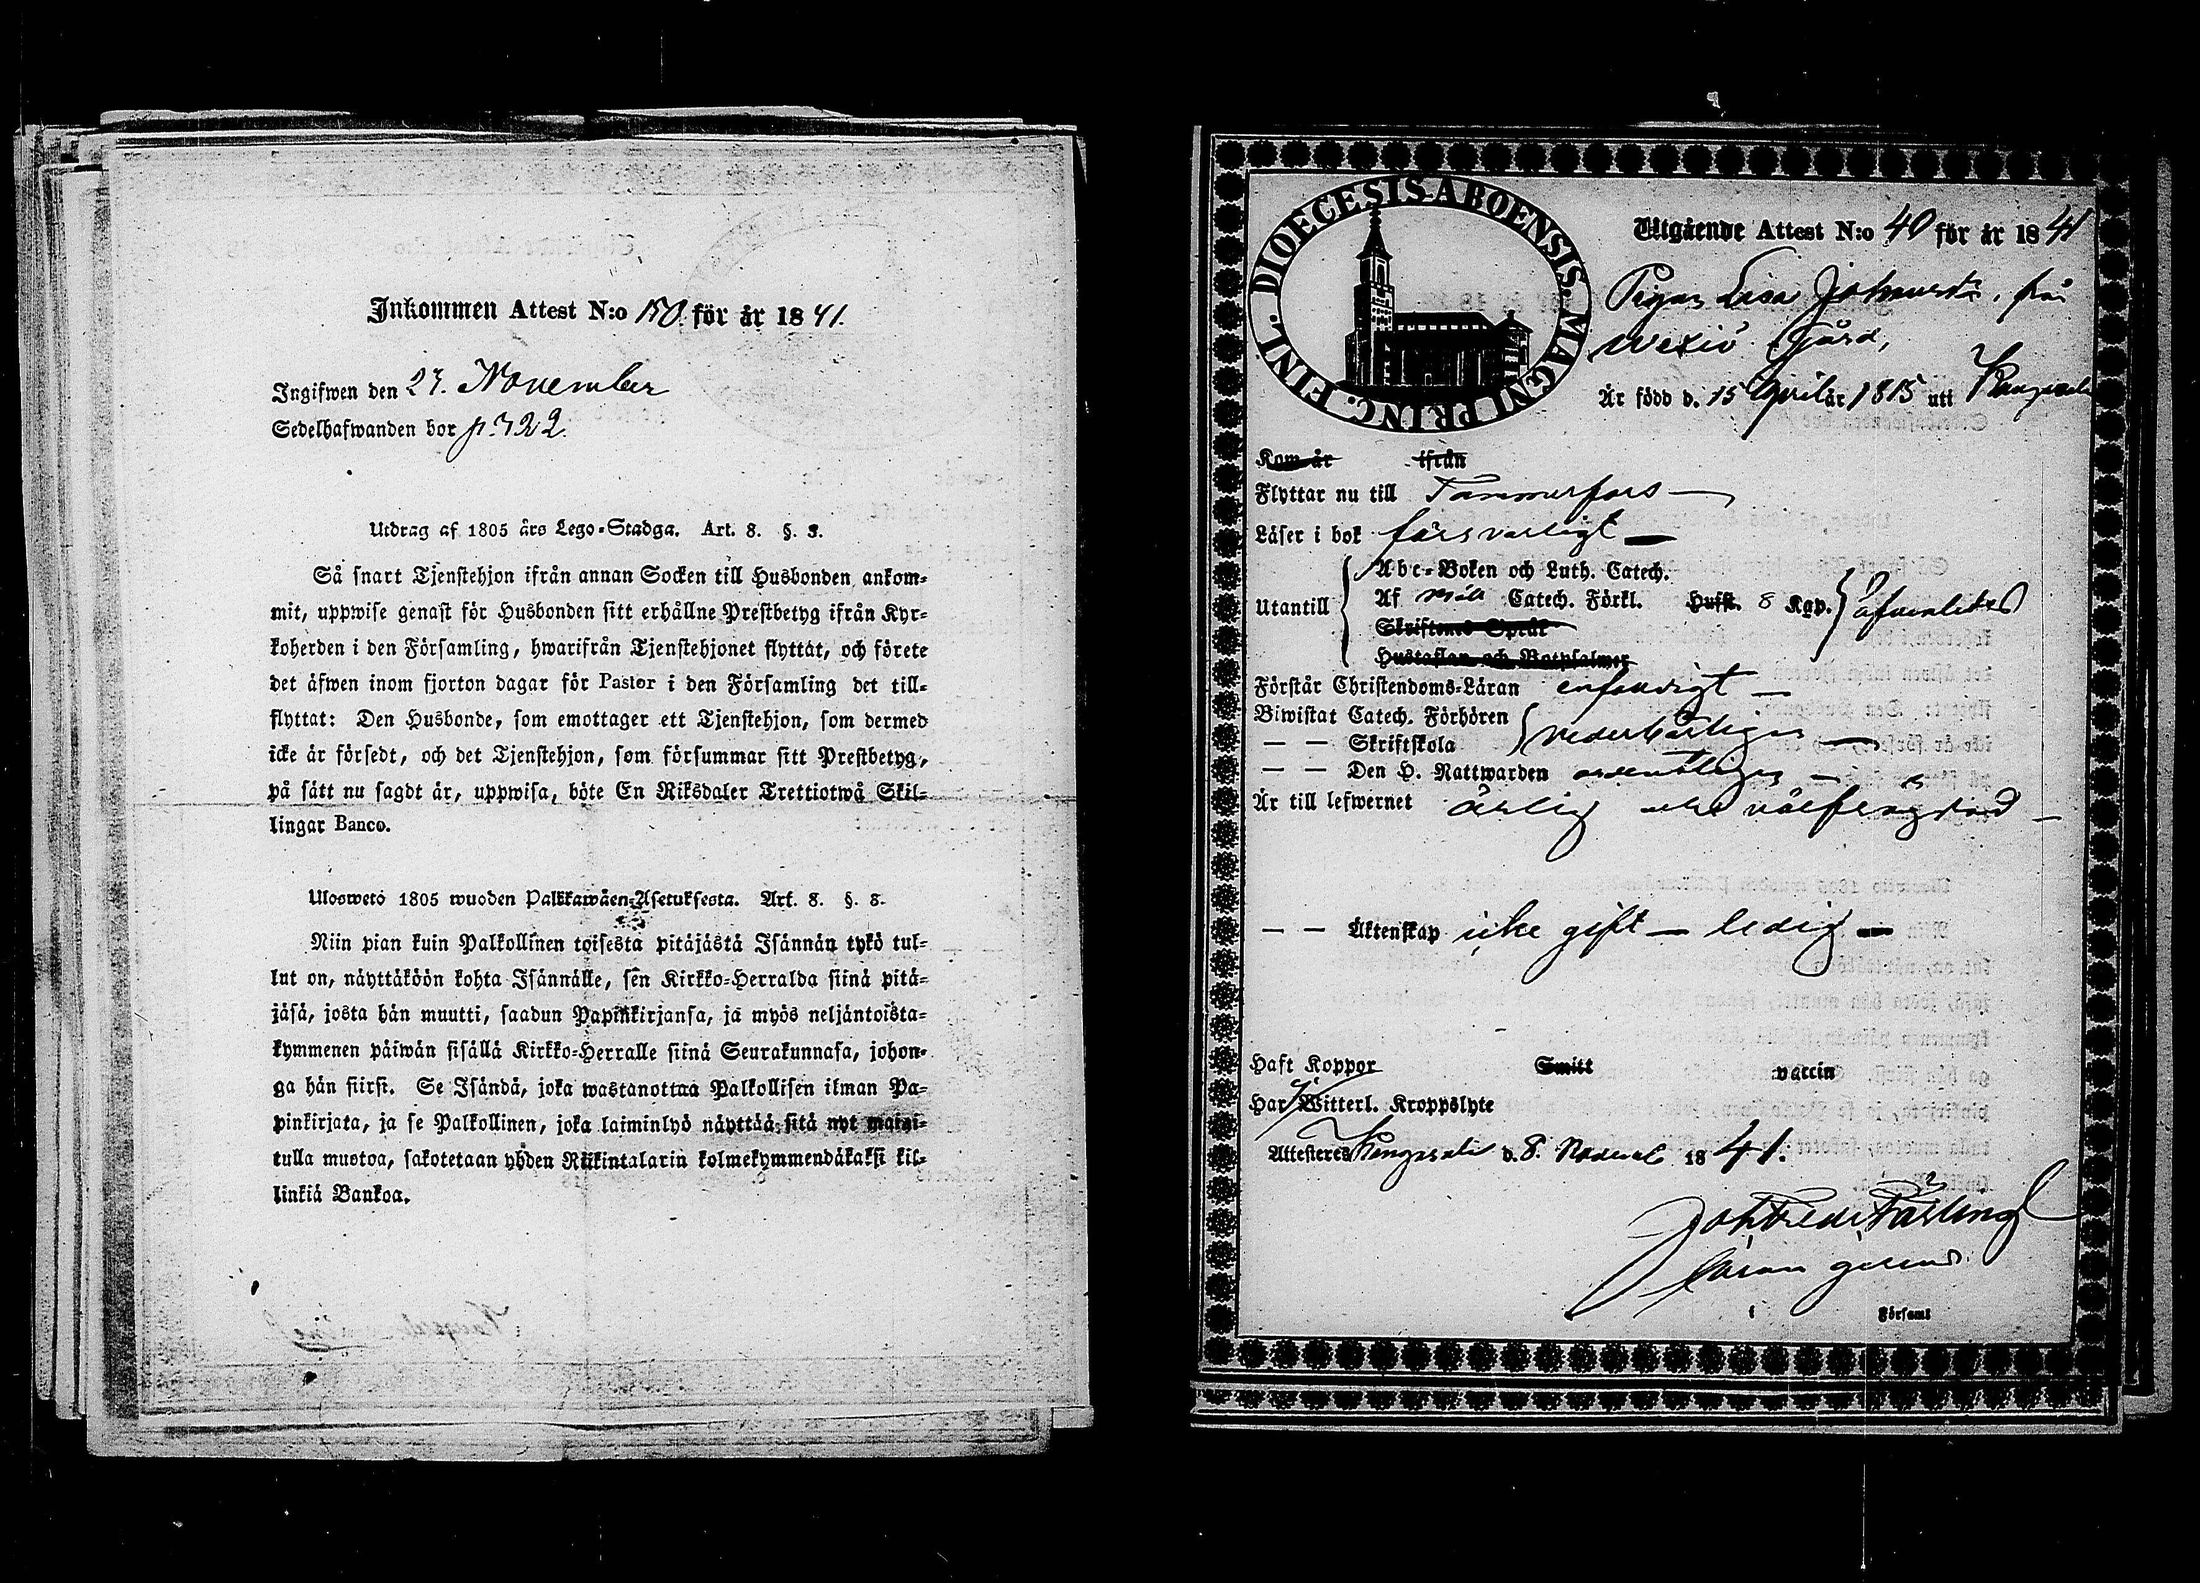 Inkommen Attest N:o 150. för år 1841.
Ingifwen den 27. November
Sedelhafwanden bor p. 722.
Utdrag af 1805 års Lego-Stadga. Art. 8. §. 3.
Så snart Tjenstehjon ifrån annan Socken till Husbonden ankom-
mit, uppwise genast för Husbonden sitt erhållne Prestbetyg ifrån Kyr-
koherden i den Församling, hwarifrån Tjenstehjonet flyttat, och förete
det äfwen inom fjorton dagar för Pastor i den Församling det till-
flyttat: Den Husbonde, som emottager ett Tjenstehjon, som dermed
icke är försedt, och det Tjenstehjon, som försummar sitt Prestbetyg,
på sätt nu sagdt är, uppwisa, böte En Riksdaler Trettiotwå Skil-
lingar Banco.
Uloswetö 1805 wuoden Palkkawäen-Asetuksesta. Art. 8. §. 3.
Niin pian kuin Palkollinen toisesta pitäjästä Isännän tykö tul-
lut on, näyttäköön kohta Isännälle, sen Kirkko-Herralda siinä pitä-
jäsä, josta hän muutti, saadun Papinkirjansa, ja myös neljäntoista-
kymmenen päiwän sisällä Kirkko-Herralle siinä Seurakunnasa, johon-
ga hän siirsi. Se Isändä, joka wastanottaa Palkollisen ilman Pa-
pinkirjata, ja se Palkollinen, joka laiminlyö näyttää sitä nyt maini-
tulla muotoa, sakotetaan yhden Riikintalarin kolmekymmendäkaksi kil-
linkiä Bankoa.
DIOECESIS ABOENSIS. MAGNI PRINC. FINL.
Utgående Attest N:o 40 för år 1841
Pigan Lisa från
Wexiö Gård,
Är född d. 15 April år 1815 uti Kangasala
Kom år ifrån
Flyttar nu till Tammerfors
Läser i bok försvarligt
Utantill
Abc-Boken och Luth. Catech.
Af Catech. Förkl. Hufst. 8 Kap.
Skriftenes Språk
Hustaflan och Botpsalmer
Förstår Christendoms-Läran enfaldigt
Biwistat Catech. Förhören
— — Skriftskola vederbörligen
— — Den H. Nattwarden ordentligen
Är till lefwernet ärlig och välfrägdad
— — Äktenskap icke gift — ledig
Haft Koppor Smitt vaccin
Har Witterl. Kroppslyte
Attesteras Kangasala d. 8. 1841.
i Församl